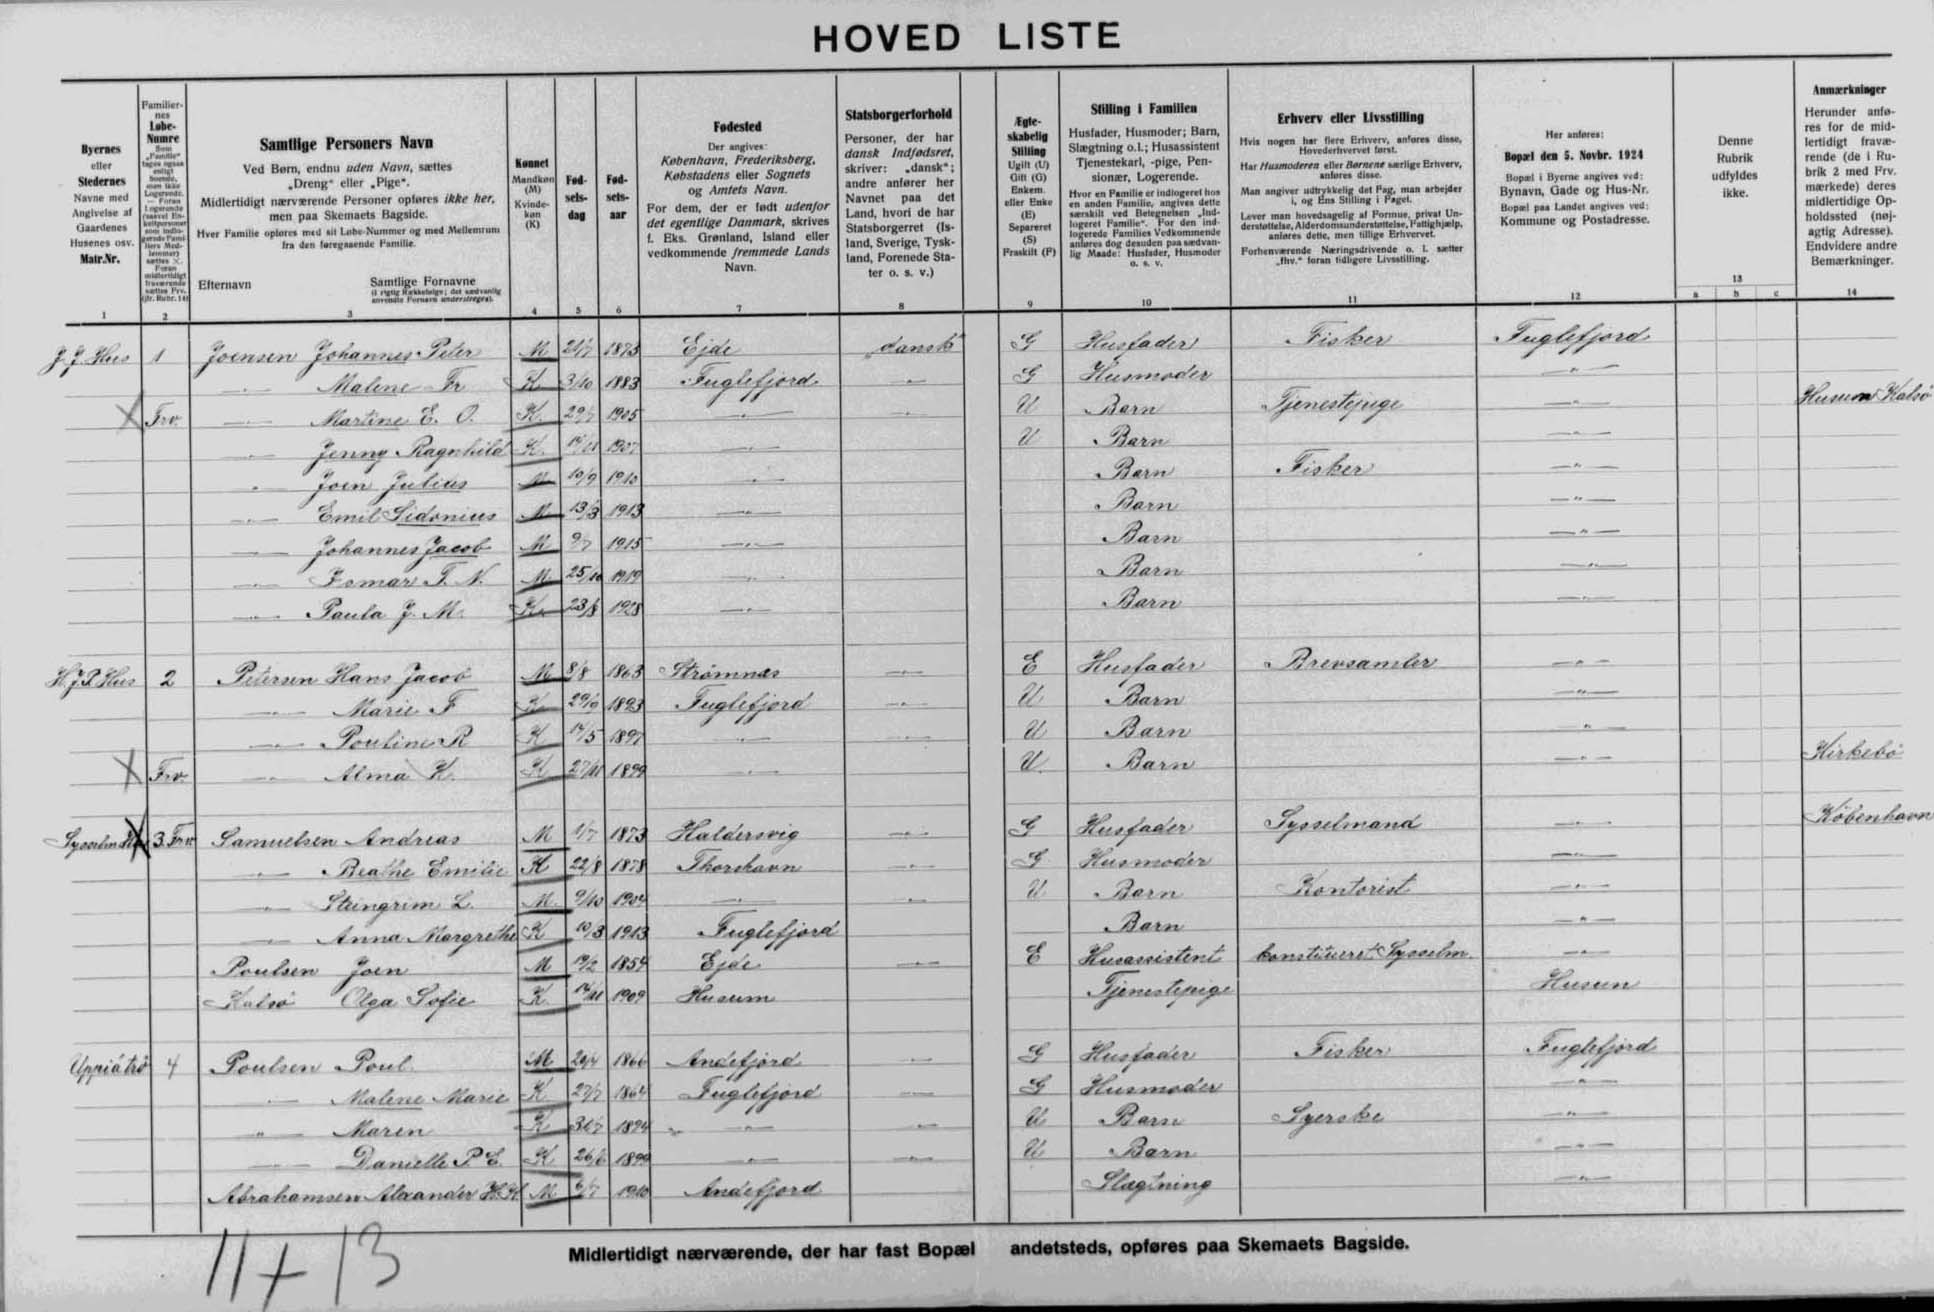 HOVED LISTE
Byernes
eller
Stedernes
Navne med
Angivelse af
Gaardenes
Husenes osv.
Matr.Nr.
1
Familier-
nes
Løbe-
Numre
Som
„Familie“
tages ogsaa
enligt
boende,
men ikke
Logerende.
— Foran
Logerende
(saavel En-
keltpersoner
som indlo-
gerede Fami-
liers Med-
lemmer)
sættes ×.
Foran
midlertidigt
fraværende
sættes Frv.
(jfr. Rubr. 14)
2
Samtlige Personers Navn
Ved Børn, endnu uden Navn, sættes
„Dreng“ eller „Pige“.
Midlertidigt nærværende Personer opføres ikke her,
men paa Skemaets Bagside.
Hver Familie opføres med sit Løbe-Nummer og med Mellemrum
fra den foregaaende Familie.
Efternavn
Samtlige Fornavne
(i rigtig Rækkefølge; det sædvanlig
anvendte Fornavn understreges).
3
Kønnet
Mandkøn
(M)
Kvinde-
køn
(K)
4
Fød-
sels-
dag
5
Fød-
sels-
aar
6
Fødested
Der angives:
København, Frederiksberg,
Købstadens eller Sognets
og Amtets Navn.
For dem, der er født udenfor
det egentlige Danmark, skrives
f. Eks. Grønland, Island eller
vedkommende fremmede Lands
Navn.
7
Statsborgerforhold
Personer, der har
dansk Indfødsret,
skriver: „dansk“;
andre anfører her
Navnet paa det
Land, hvori de har
Statsborgerret (Is-
land, Sverige, Tysk-
land, Forenede Sta-
ter o. s. v.)
8
Ægte-
skabelig
Stilling
Ugift (U)
Gift (G)
Enkem.
eller Enke
(E)
Separeret
(S)
Fraskilt (F)
9
Stilling i Familien
Husfader, Husmoder; Barn,
Slægtning o.l.; Husassistent
Tjenestekarl, -pige, Pen-
sionær, Logerende.
Hvor en Familie er indlogeret hos
en anden Familie, angives dette
særskilt ved Betegnelsen „Ind-
logeret Familie“. For den ind-
logerede Families Vedkommende
anføres dog desuden paa sædvan-
lig Maade: Husfader, Husmoder
o. s. v.
10
Erhverv eller Livsstilling
Hvis nogen har flere Erhverv, anføres disse,
Hovederhvervet først.
Har Husmoderen eller Børnene særlige Erhverv,
anføres disse.
Man angiver udtrykkelig det Fag, man arbejder
i, og Ens Stilling i Faget.
Lever man hovedsagelig af Formue, privat Un-
derstøttelse, Alderdomsunderstøttelse, Fattighjælp,
anføres dette, men tillige Erhvervet.
Forhenværende Næringsdrivende o. l. sætter
„fhv.“ foran tidligere Livsstilling.
11
Her anføres:
Bopæl den 5. Novbr. 1924
Bopæl i Byerne angives ved:
Bynavn, Gade og Hus-Nr.
Bopæl paa Landet angives ved:
Kommune og Postadresse.
12
Denne
Rubrik
udfyldes
ikke.
13
a b c
Anmærkninger
Herunder anfø-
res for de mid-
lertidigt fravæ-
rende (de i Ru-
brik 2 med Frv.
mærkede) deres
midlertidige Op-
holdssted (nøj-
agtig Adresse).
Endvidere andre
Bemærkninger.
14
J. J. Hus 1 Joensen Johannes Peter M 21/7 1873 Ejde „dansk“ G Husfader Fisker Fuglefjord
—"— Malene Fr K 3/10 1883 Fuglefjord —"— G Husmoder —"—
× Frv. —"— Martine E. O. K 29/7 1905 —"— —"— U Barn Tjenestepige —"— Husum Kalsø
—"— Jenny Ragnhild K. 1907 —"— U Barn
" Joen Julius M 19/9 1910 —"— Barn Fisker —"—
—"— Emil Sidonius M 13/3 1913 —"— Barn —"—
—"— Johannes Jacob M 9/7 1915 —"— Barn —"—
—"— T. N. M 25/10 1919 —"— Barn —"—
—"— Paula J. M. K. 23/8 1928 —"— Barn
H. J. P. Hus 2 Petersen Hans Jacob M 8/8 1863 Strømnæs —"— E Husfader Brevsamler —"—
—"— Marie F K 1893 Fuglefjord —"— U Barn —"—
—"— Pouline R K 14/5 1897 —"— —"— U Barn —"—
× Frv. —"— Alma K. K 27/11 1899 —"— U. Barn —"— Kirkebö
Sysselm × 3. Frv Samuelsen Andreas M 1/7 1873 Haldersvig —"— G Husfader Sysselmand —"— København
—"— Beathe Emilie K 22/8 1878 Thorshavn —"— G Husmoder —"—
—"— Steingrim L. M. 9/10 1904 —"— —"— U Barn Kontorist —"—
—"— Anna Margrethe K 10/3 1913 Fuglefjord Barn —"—
Poulsen Joen M 19/2 1854 Ejde —"— E Husassistent konstitueret Sysselm. —"—
Kalsø Olga Sofie K. 14/11 1909 Husum Tjenestepige Husun
Uppiátrö 4 Poulsen Poul M 29/4 1866 Andefjord —"— G Husfader Fisker Fuglefjord
—"— Malene Marie K. 27/7 1864 Fuglefjord —"— G Husmoder —"—
—"— Maren K 31/7 1894 —"— —"— U Barn Syerske —"—
—"— Danielle P. E. K 26/6 1899 —"— —"— U Barn —"—
Abrahamsen Alexander H. H M 6/7 1910 Andefjord Slægtning —"—
Midlertidigt nærværende, der har fast Bopæl andetsteds, opføres paa Skemaets Bagside.
11 + 13